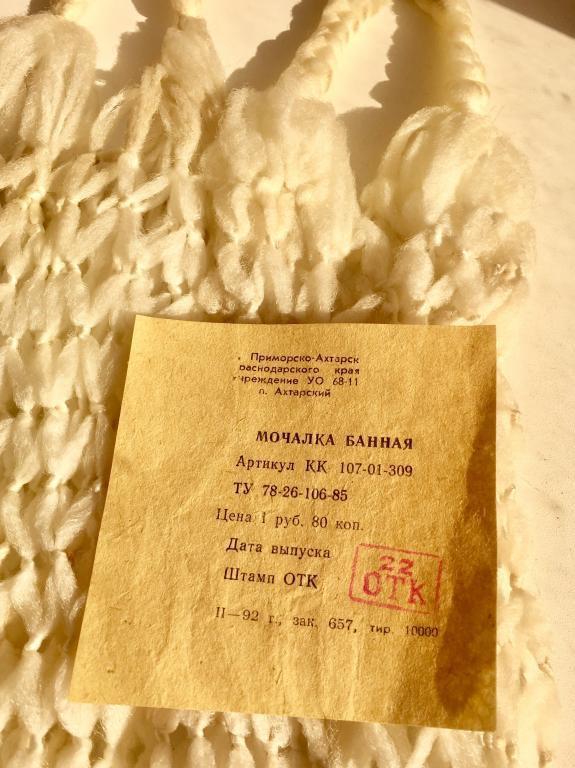 . Приморско-Ахтарск
раснодарского края
чреждение УО 68-11
п. Ахтарский
МОЧАЛКА БАННАЯ
Артикул КК 107-01-309
ТУ 78-26-106-85
Цена 1 руб. 80 коп.
Дата выпуска
Штамп ОТК
22
ОТК
II—92 г., зак. 657, тир. 10000